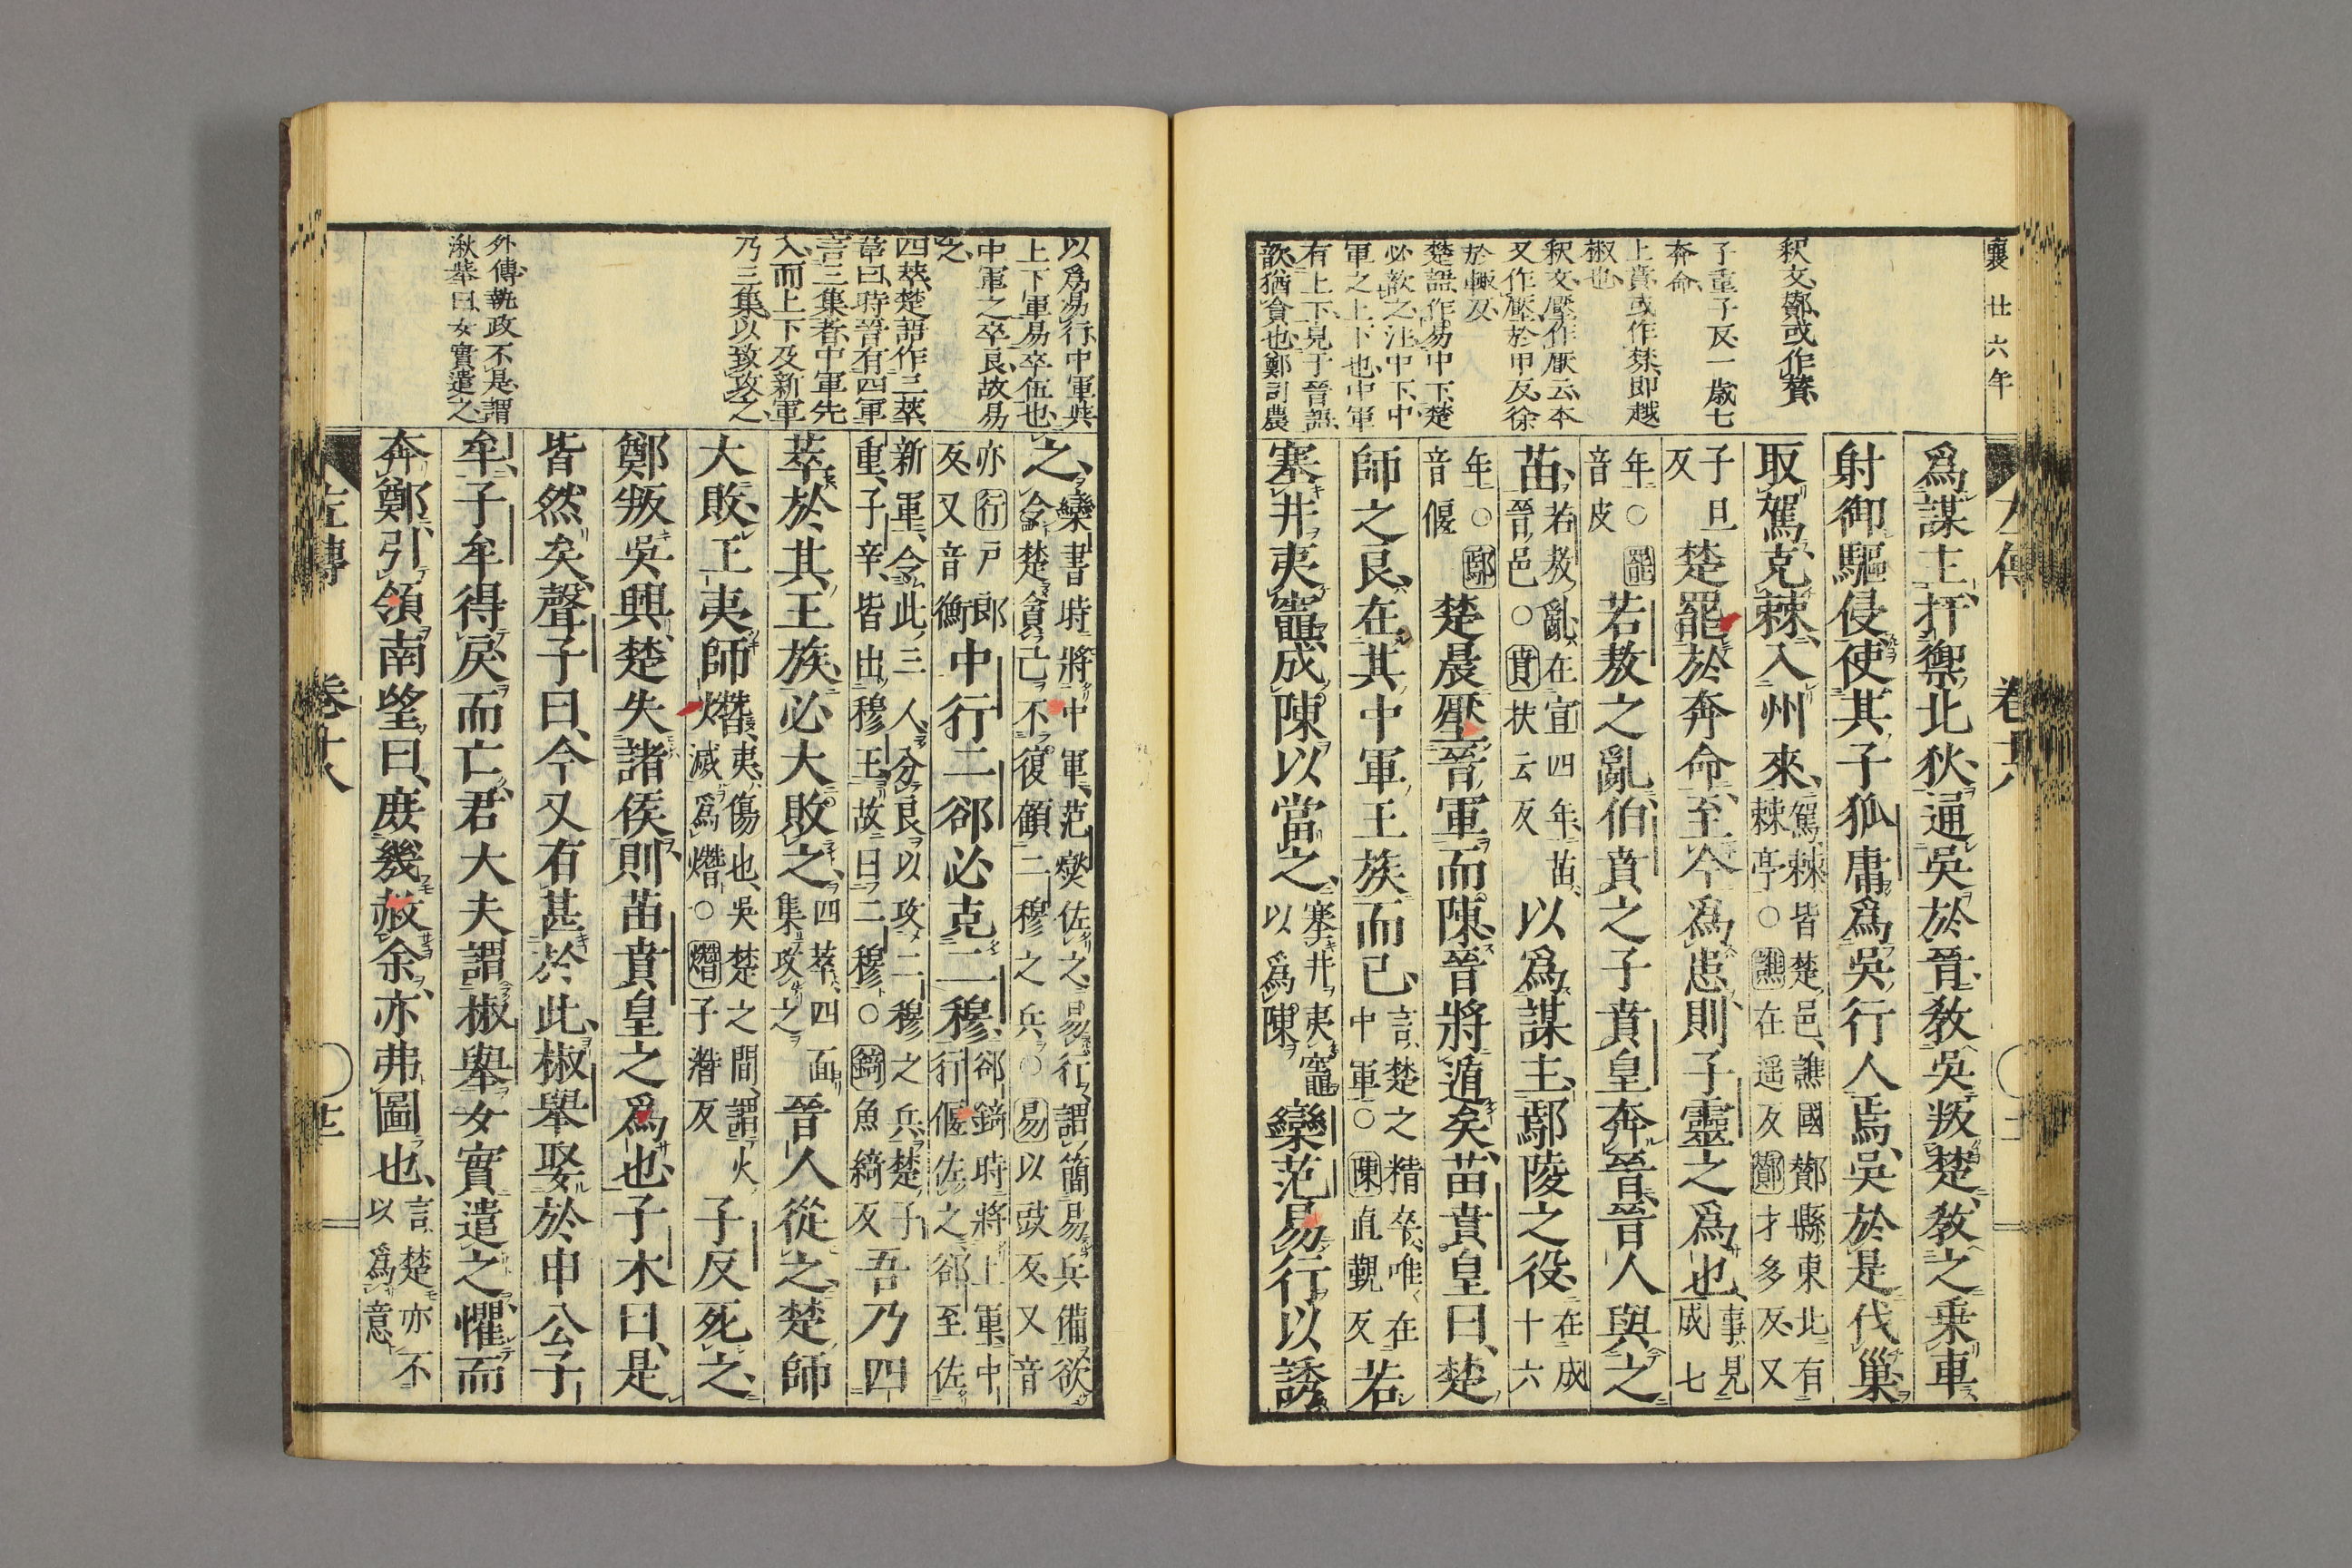 襄廿六年
左傳 卷十八
釈文鄼或作贊
子重子反一歳七
奔命
上賁或作棼即越
椒也
釈文壓作厭云本
又作壓於甲反徐
於輒反
楚語作易中下楚
必歆之注中下中
軍之上下也中軍
有上下見于晉語
歆猶貪也鄭司農
爲謀主扞禦北狄通吳於晉教吳叛楚教之乘車
射御驅侵使其子狐庸爲吳行人焉吳於是伐巢
取駕克棘入州來駕棘皆楚邑譙國鄼縣東北有
棘亭○譙在遥反鄼才多反又
子旦
反楚罷於奔命至今爲患則子靈之爲也事見
成七
年○罷
音皮若敖之亂伯賁之子賁皇奔晉晉人與之
苗若敖亂在宣四年苗
晉邑○賁扶云反以爲謀主鄢陵之役在成
十六
年○鄢
音偃楚晨壓晉軍而陳晉將遁矣苗賁皇曰楚
師之良在其中軍王族而已言楚之精卒唯在
中軍○陳直覲反若
塞井夷竈成陳以當之塞井夷竈
以爲陳欒范易行以誘
以爲易行中軍與
上下軍易卒伍也
中軍之卒良故易
之
四萃楚語作三萃
韋曰時晉有四軍
言三集者中軍先
入而上下及新軍
乃三集以致攻之
外傳執政不是謂
湫舉曰女實遣之
之欒書時將中軍范燮佐之易行謂簡易兵備欲
令楚貪己不復顧二穆之兵○易以豉反又音
亦行戸郎
反又音衡中行二郤必克二穆郤錡時將上軍中
行偃佐之郤至佐
新軍令此三人分良以攻二穆之兵楚子
重子辛皆出穆王故曰二穆○錡魚綺反吾乃四
萃於其王族必大敗之四萃四面
集攻之晉人從之楚師
大敗王夷師熸夷傷也吳楚之間謂火
滅爲熸○熸子潛反子反死之
鄭叛吳興楚失諸侯則苗賁皇之爲也子木曰是
皆然矣聲子曰今又有甚於此椒舉娶於申公子
牟子牟得戻而亡君大夫謂椒舉女實遣之懼而
奔鄭引領南望曰庶幾赦余亦弗圖也言楚亦不
以爲意
左傳 卷十八